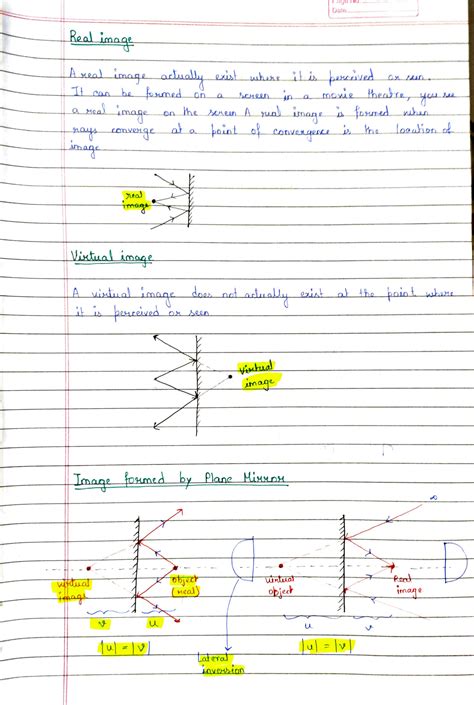 Date
Real image
A real image actually exist where it is perceived or seen.
It can be formed on a screen in a movie theatre, you see
a real image on the screen A real image is formed when
rays converge at a point of convergence is the location of
image
real
image
Virtual image
A virtual image does not actually exist at the point where
it is perceived or seen
virtual
image
Image formed by Plane Mirror
∞
virtual
image
object
(real)
virtual
object
Real
image
v u
u v
|u| = |v|
|u| = |v|
Lateral
inversion